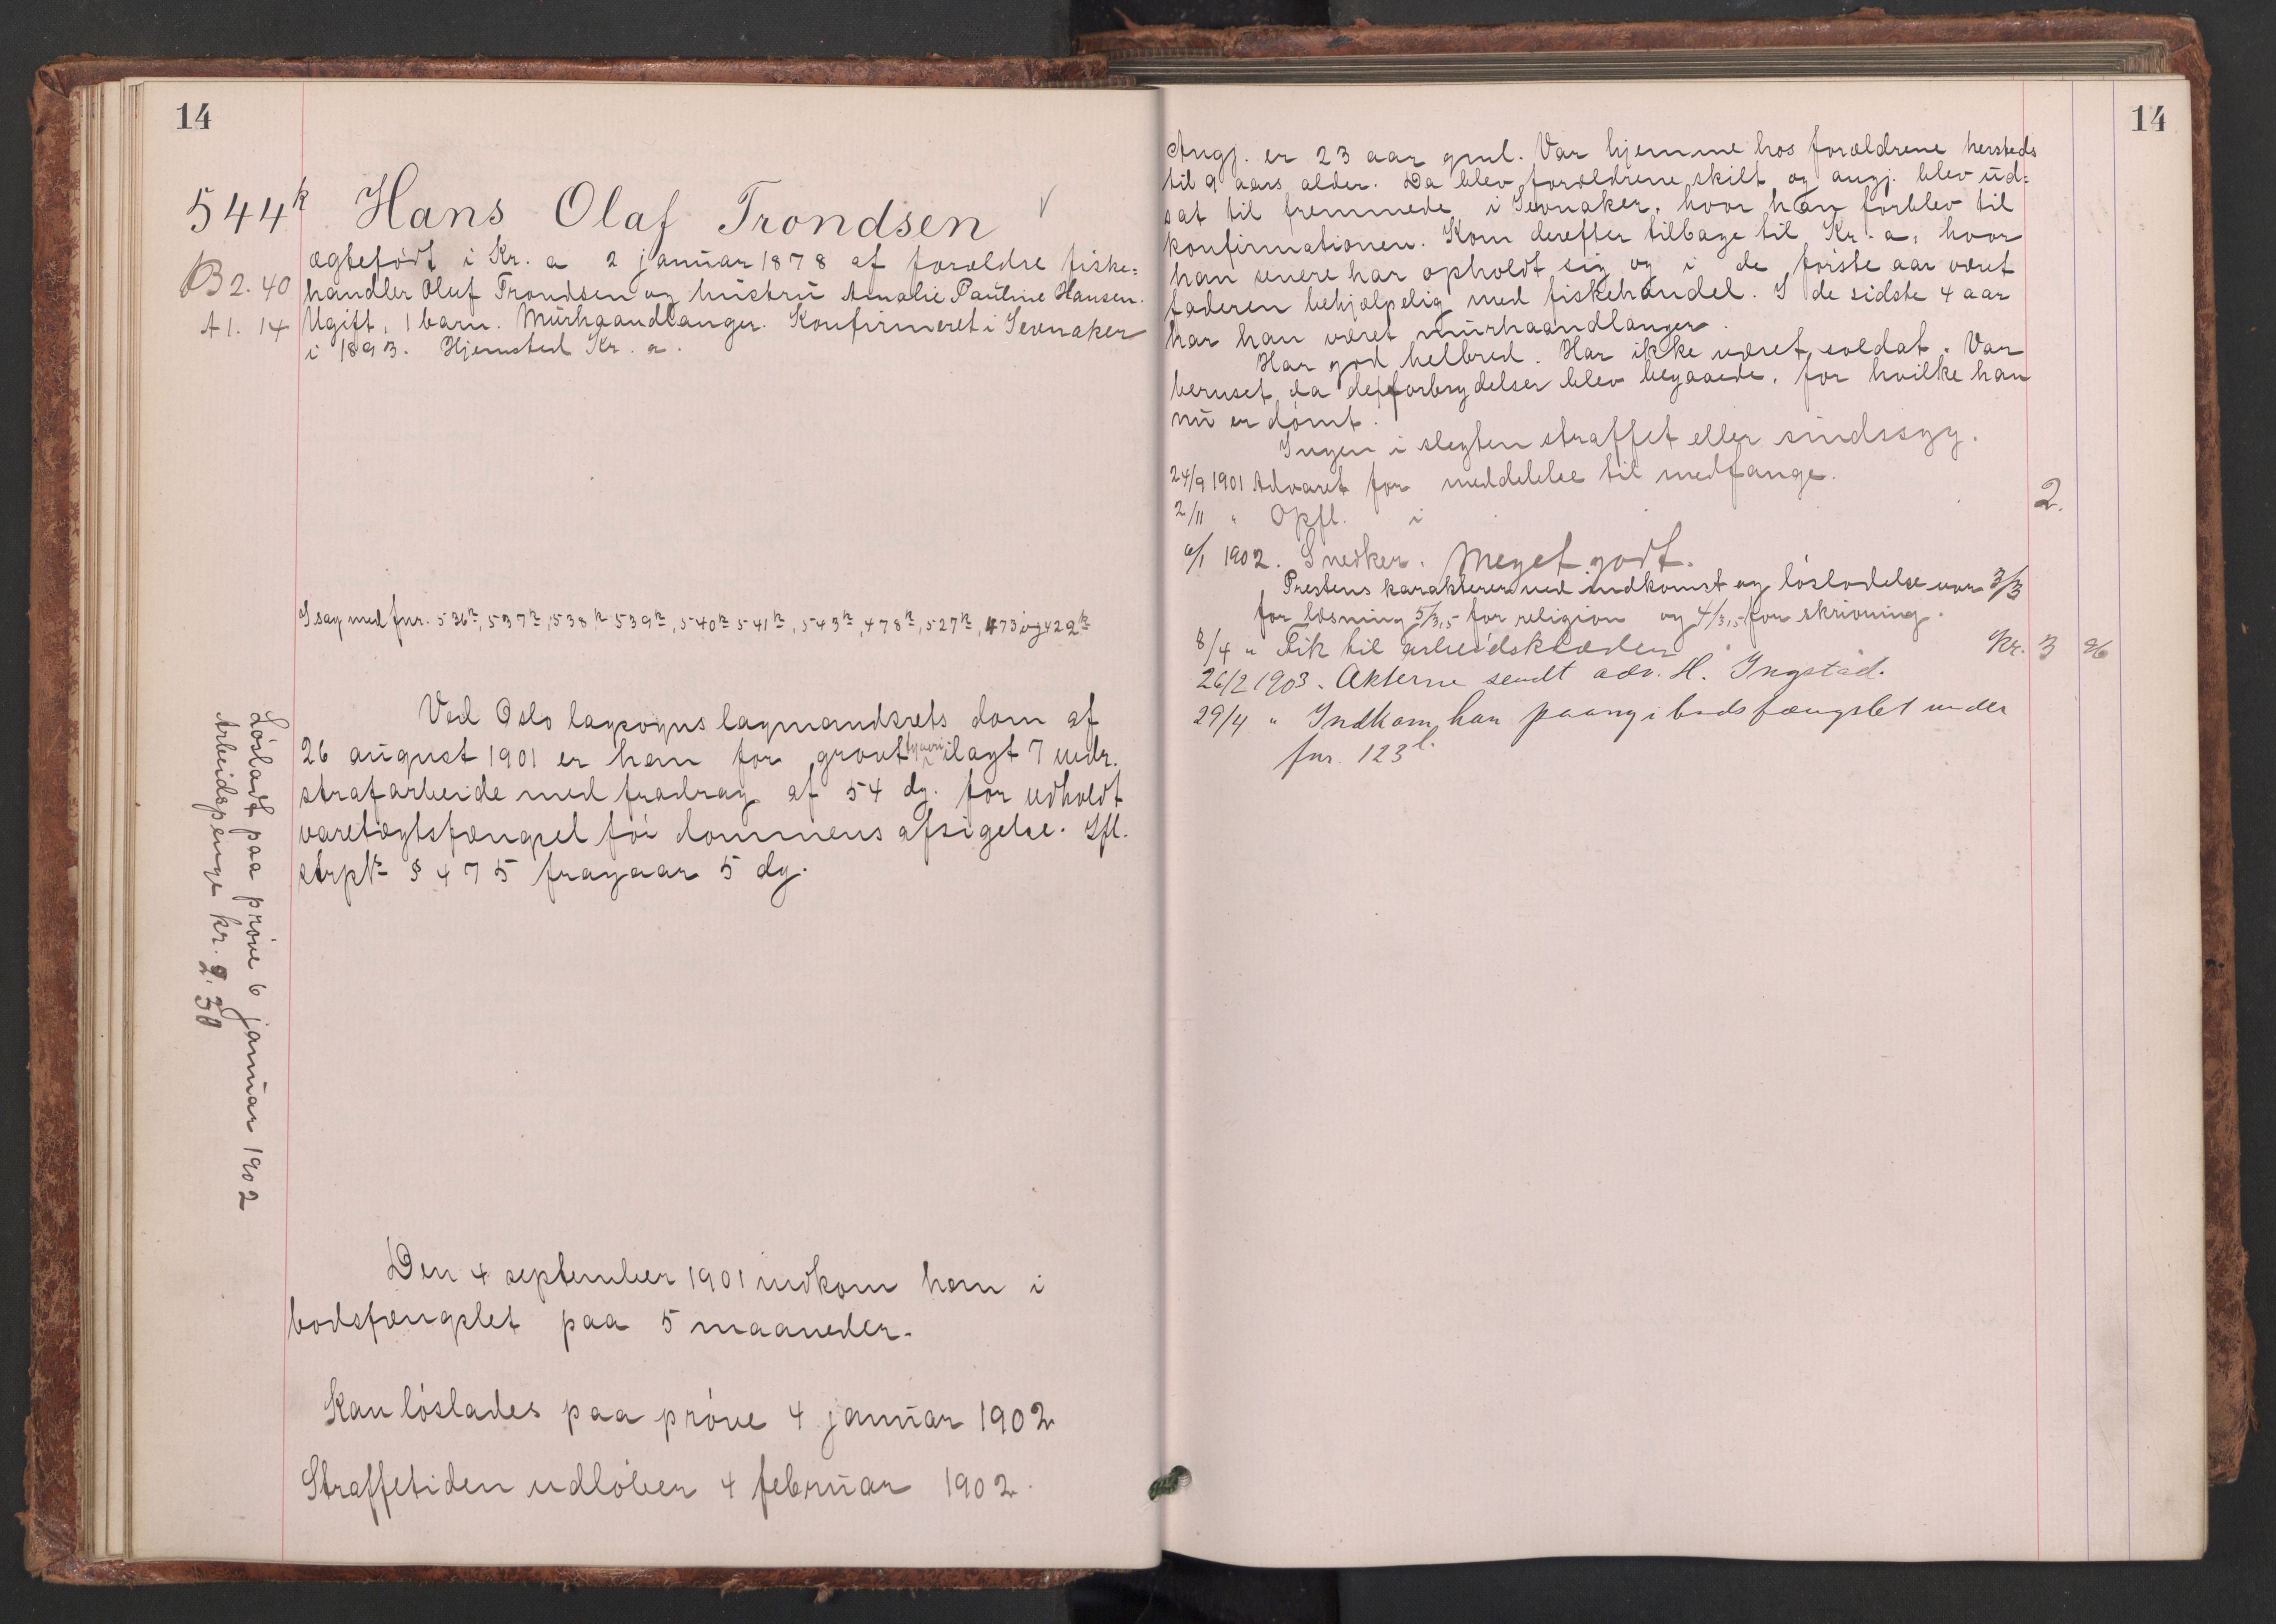 14
544k Hans Olaf Trondsen
B 2. 40
A 1. 14
ægtefødt i Kr. a 2 januar 1878 af forældre fiske-
handler Oluf Trondsen og hustru Amalie Pauline Hansen.
Ugift, 1 barn. Murhaandlanger. Konfirmeret i Jevnaker
i 1893. Hjemsted Kr. a.
I sag med fnr. 536k, 537k, 538k 539k, 540k 541k, 543k, 478k, 527k, 473i og 422k
Ved Oslo lagsogns lagmandsrets dom af
26 august 1901 er han for grovt tyveri ilagt 7 mdr.
strafarbeide med fradrag af 54 dg. for udholdt
varetægtsfængsel før dommens afsigelse. Ifl.
strpl. § 475 fragaar 5 dg.
Løsladt paa prøve 6 januar 1902
Arbeidspenge kr. 2.30
Den 4 september 1901 indkom han i
bodsfængslet paa 5 maaneder.
Kan løslades paa prøve 4 januar 1902
Straffetiden udløber 4 februar 1902.
14
Angj. er 23 aar gml. Var hjemme hos forældrene hersteds
til 9 aars alder. Da blev forældrene skilt og angj. blev ud-
sat til fremmede i Jevnaker, hvor han forblev til
konfirmationen. Kom derefter tilbage til Kr. a, hvor
han senere har opholdt sig og i de første aar været
faderen behjælpelig med fiskehandel. I de sidste 4 aar
har han været murhaandlanger.
Har god helbred. Har ikke været soldat. Var
beruset, da de forbrydelser blev begaaede, for hvilke han
nu er dømt.
Ingen i slegten straffet eller sindssyg.
24/9 1901 Advaret for meddelelse til medfange.
2/11 " Opfl. i 2.
6/1 1902. Snedker. Meget godt.
Prestens karakterer ved indkomst og løsladelse var 3/3
for læsning 5/3,5 for religion og 4/3,5 for skrivning.
8/4 " Fik til arbeidsklæder Kr. 3 26
26/2 1903. Akterne sendt adv. H. Ingstad.
29/4 " Indkom han paany i bodsfængslet under
fnr. 123l.